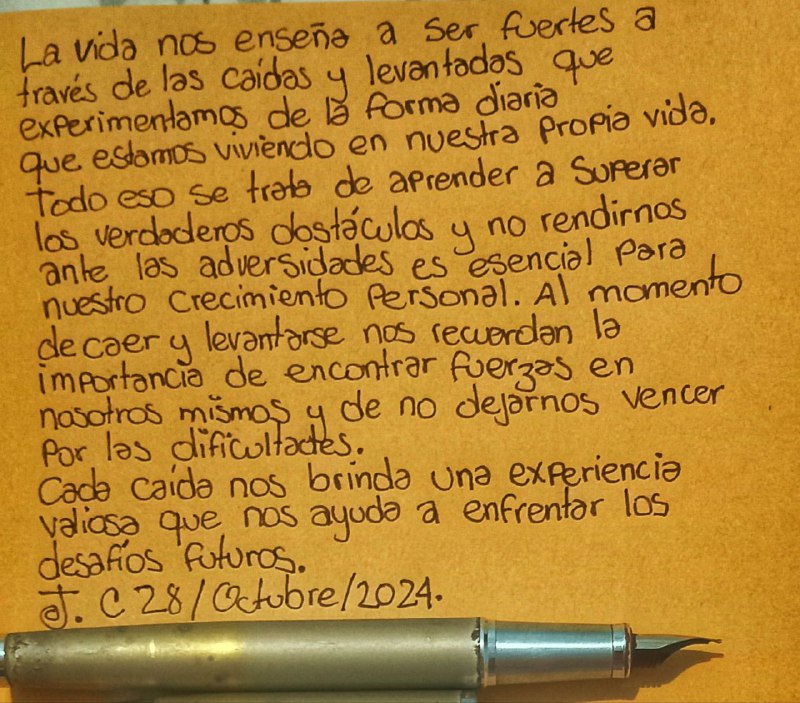 La vida nos enseña a ser fuertes a
través de las caídas y levantadas que
experimentamos de la forma diaria
que estamos viviendo en nuestra propia vida.
Todo eso se trata de aprender a superar
los verdaderos obstáculos y no rendirnos
ante las adversidades es esencial para
nuestro crecimiento personal. Al momento
de caer y levantarse nos recuerdan la
importancia de encontrar fuerzas en
nosotros mismos y de no dejarnos vencer
por las dificultades.
Cada caída nos brinda una experiencia
valiosa que nos ayuda a enfrentar los
desafíos futuros.
J. C 28/Octubre/2024.